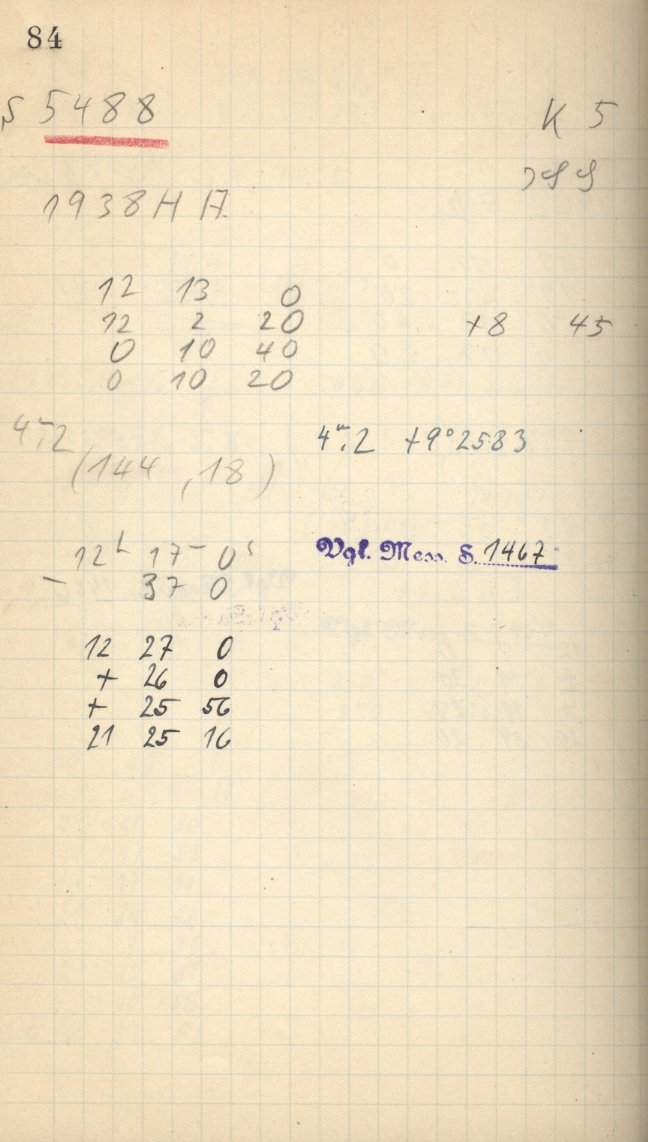 84
S 5488 K 5
1938 HA
12 13 0
12 2 20 +8 45
0 10 40
0 10 20
4ᵐ.2 4ᵐ.2 +9°2583
(144, 18)
12ʰ 17ᵐ 0ˢ Vgl. Mess. S. 1467
− 37 0
12 27 0
+ 26 0
+ 25 56
21 25 16